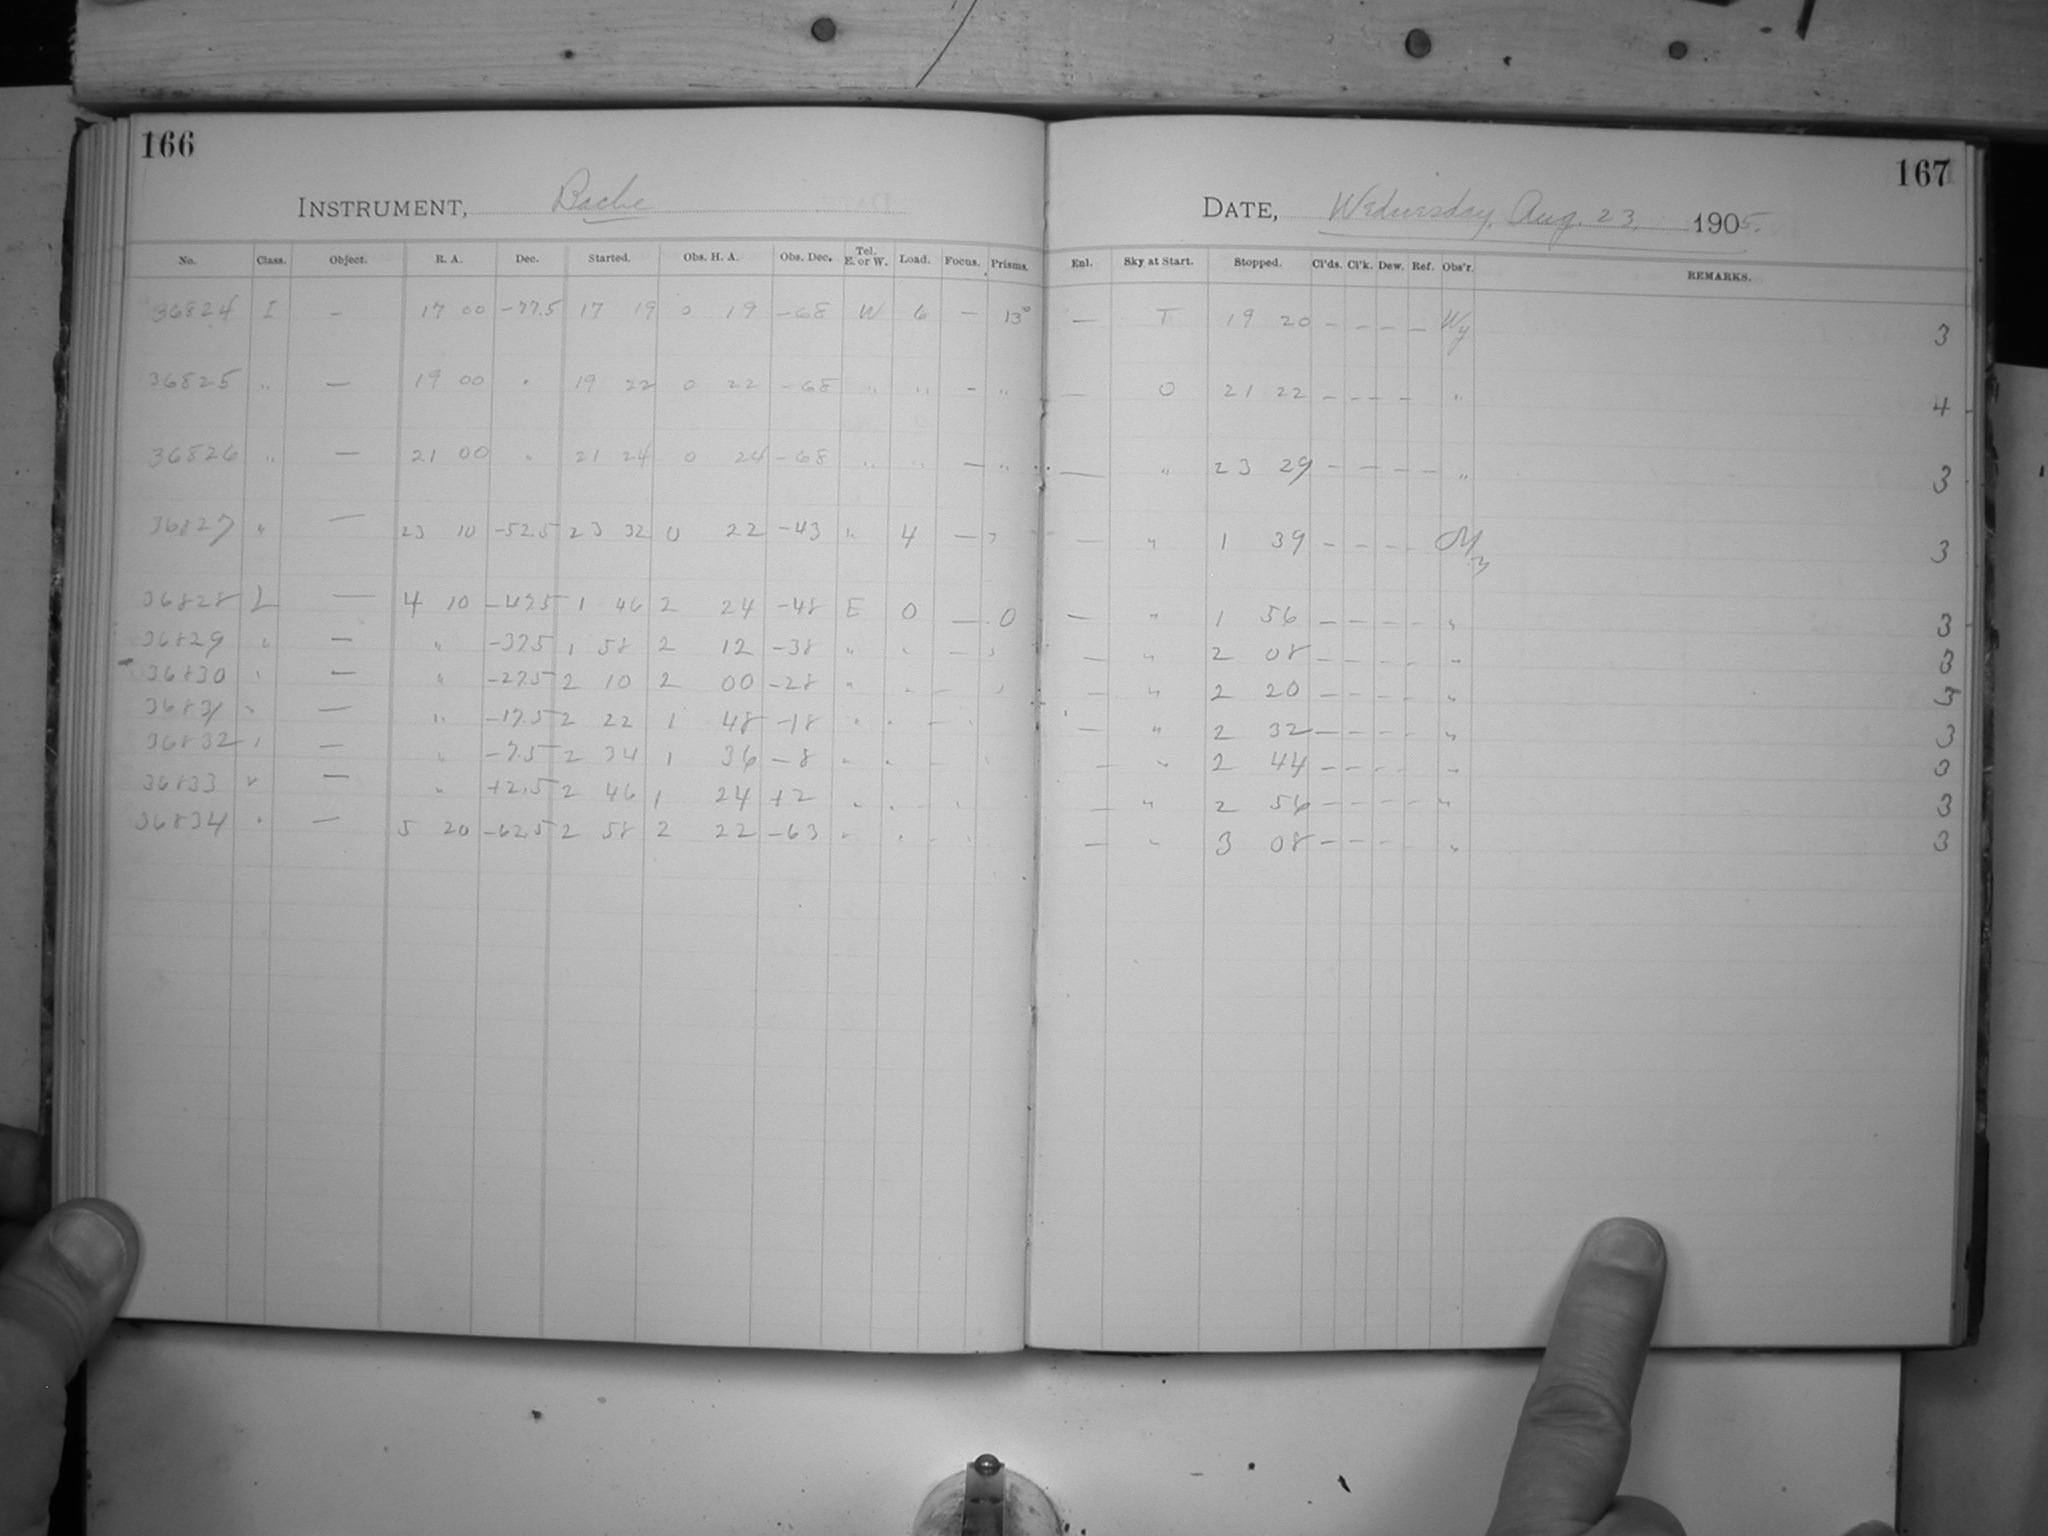 166
INSTRUMENT, Bache
No. Class. Object. R. A. Dec. Started. Obs. H. A. Obs. Dec. Tel. E. or W. Load. Focus. Prisms.
36824 I — 17 00 -77.5 17 19 0 19 -68 W 6 — 13°
36825 " — 19 00 " 19 22 0 22 -68 " " — "
36826 " — 21 00 " 21 24 0 24 -68 " " — "
36827 " — 23 10 -52.5 23 32 0 22 -43 " 4 — "
36828 L — 4 10 -47.5 1 46 2 24 -48 E 0 — 0
36829 " — " -37.5 1 58 2 12 -38 " " — "
36830 " — " -27.5 2 10 2 00 -28 " " — "
36831 " — " -17.5 2 22 1 48 -18 " " — "
36832 " — " -7.5 2 34 1 36 -8 " " — "
36833 " — " +2.5 2 46 1 24 +2 " " — "
36834 " — 5 20 -62.5 2 58 2 22 -63 " " — "
167
DATE, Wednesday, Aug. 23, 1905.
Enl. Sky at Start. Stopped. Cl'ds. Cl'k. Dew. Ref. Obs'r. REMARKS.
— T 19 20 — — — — Wy 3
— 0 21 22 — — — — " 4
— " 23 29 — — — — " 3
— " 1 39 — — — — 3
— " 1 56 — — — — " 3
— " 2 08 — — — — " 3
— " 2 20 — — — — " 3
— " 2 32 — — — — " 3
— " 2 44 — — — — " 3
— " 2 56 — — — — " 3
— " 3 08 — — — — " 3